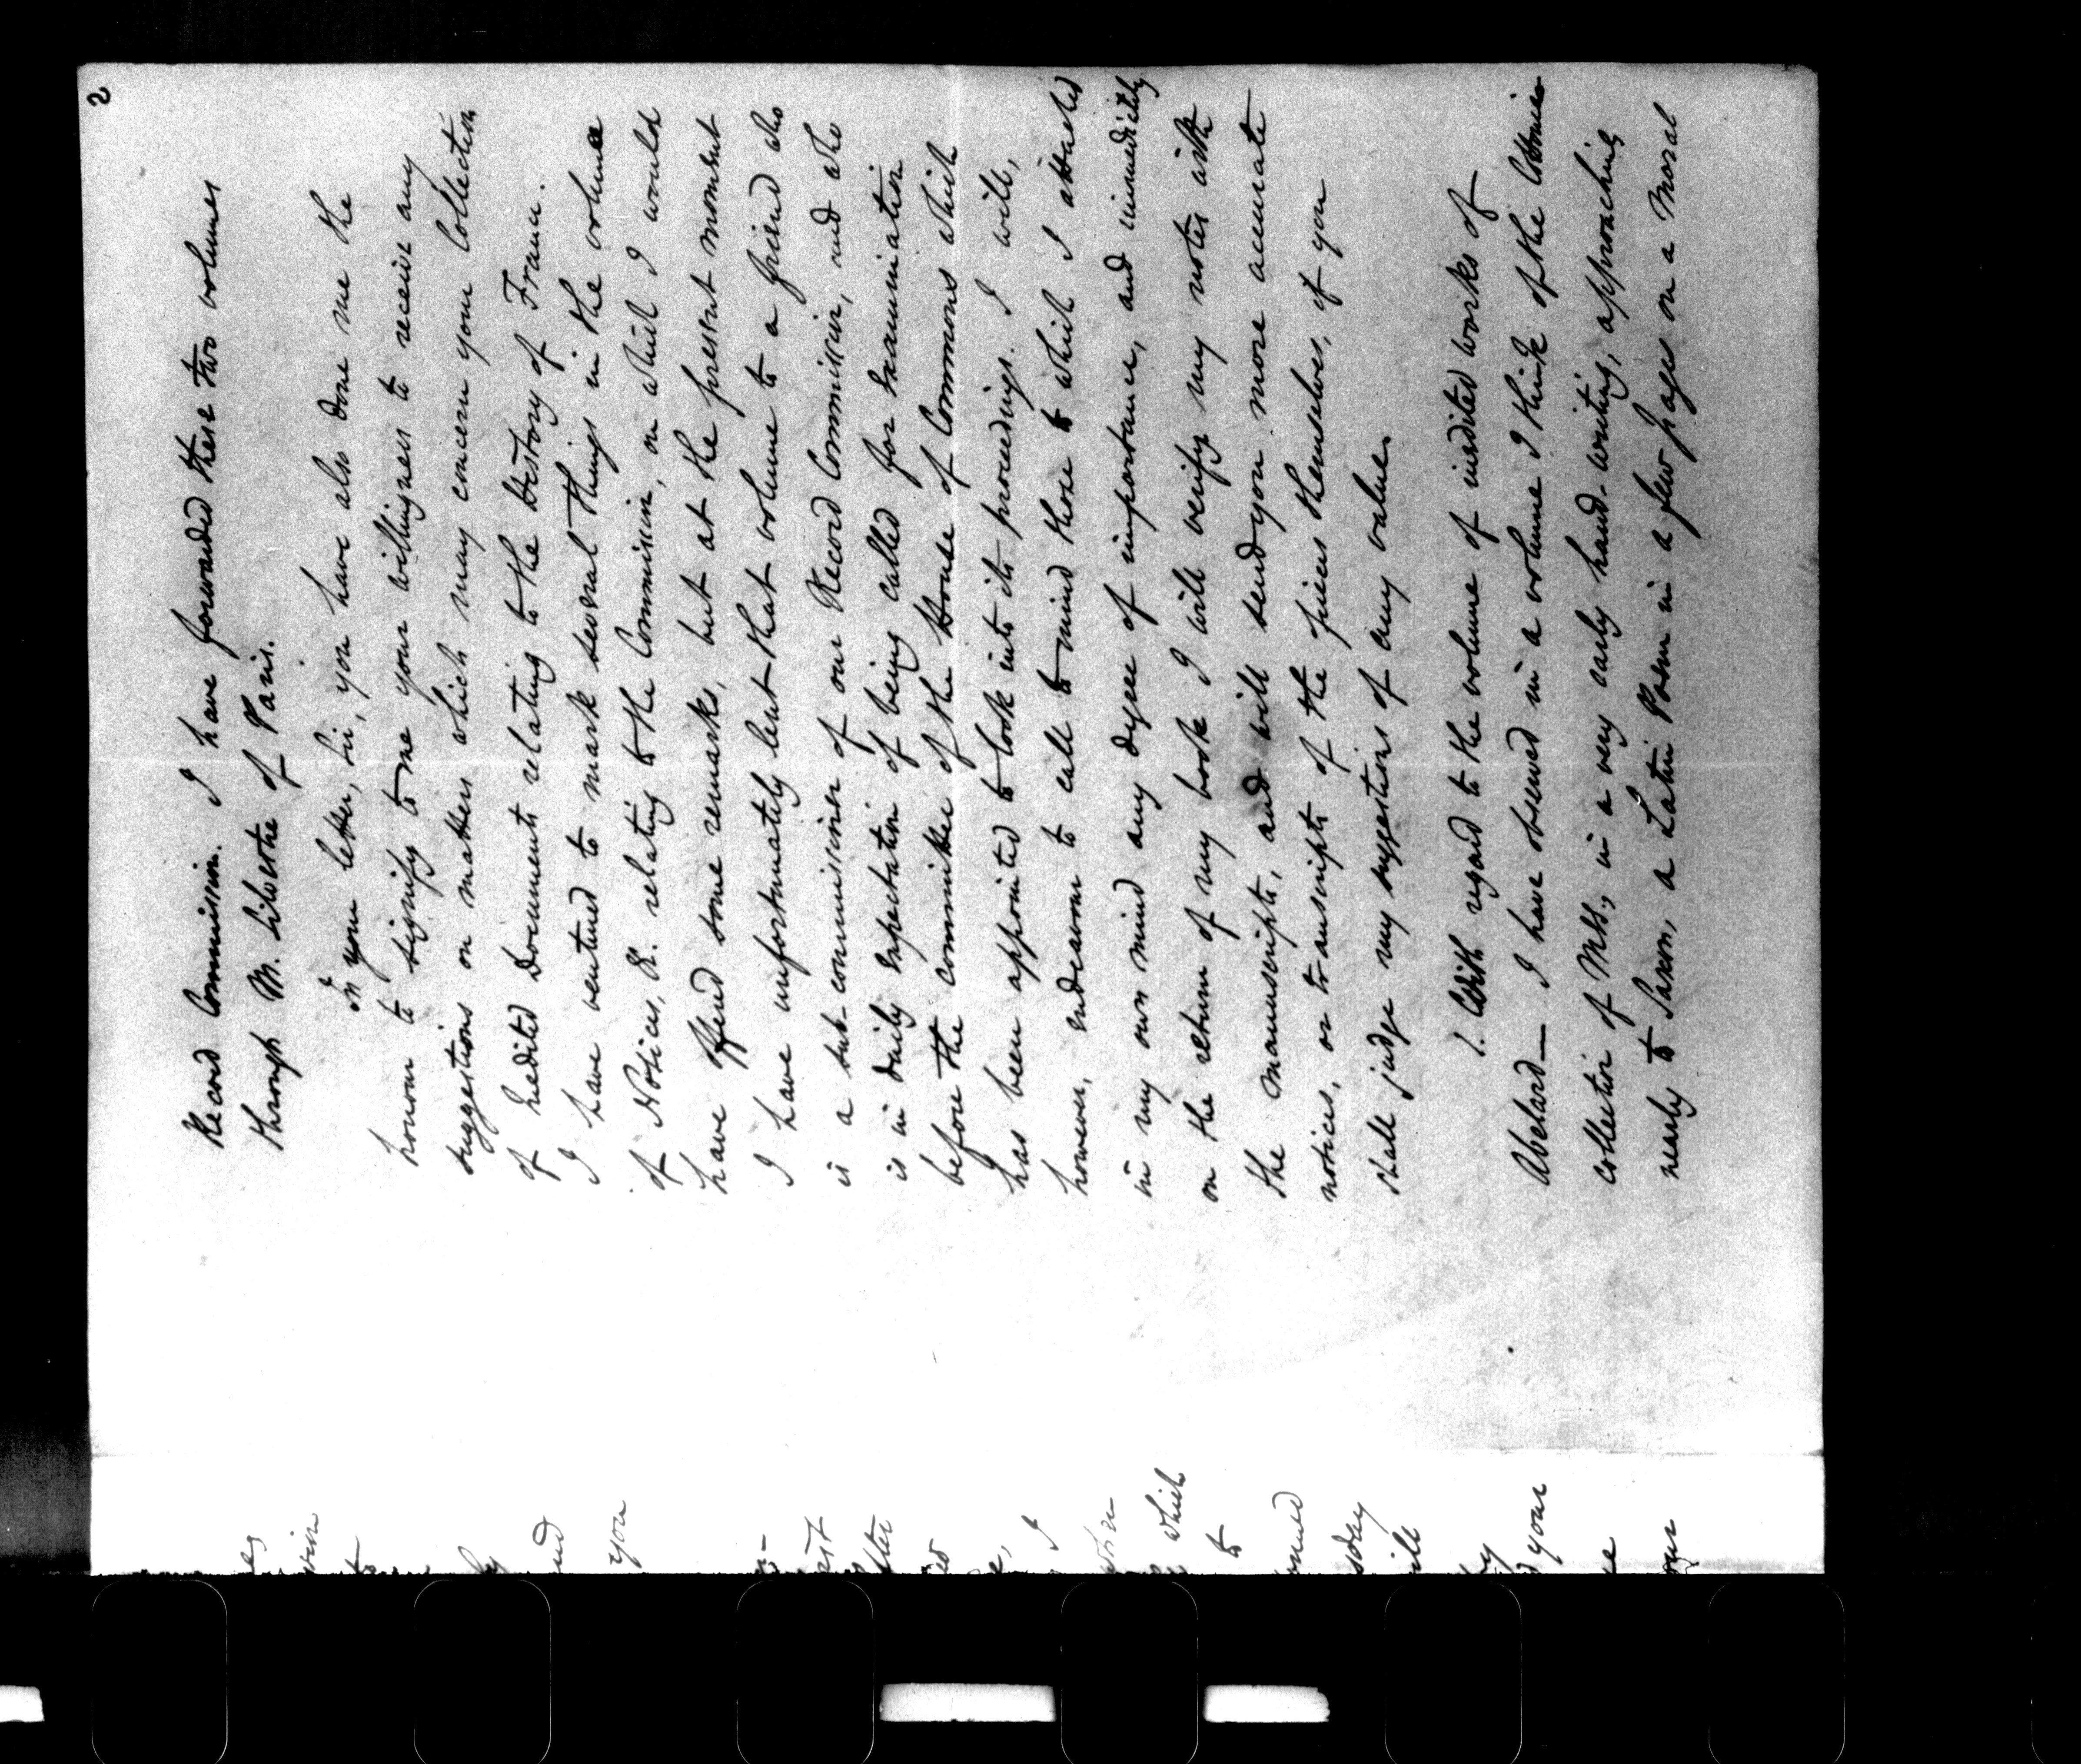 2
Record Commission. I have forwarded these two volumes
through M. Silvestre of Paris.
In your letter, Sir, you have also done me the
honour to signify to me your willingness to receive any
suggestions on matters which may concern your Collection
of Inedited Documents relating to the History of France.
I have ventured to mark several things in the volume
of Notices, &. relating to the Commission, on which I would
have offered some remarks, but at the present moment
I have unfortunately lent that volume to a friend who
is a sub-commissioner of our Record Commission, and who
is in daily expectation of being called for examination
before the committee of the House of Commons which
has been appointed to look into its proceedings. I will,
however, endeavour to call to mind those to which I attached
in my own mind any degree of importance, and immediately
on the return of my book I will verify my notes with
the manuscripts, and will send you more accurate
notices, or transcripts of the pieces themselves, if you
shall judge my suggestions of any value.
1. With regard to the volume of inedited works of
Abelard — I have observed in a volume I think of the Cottonian
collection of MSS, in a very early hand-writing, approaching
nearly to Saxon, a Latin Poem in a few pages on a Moral
and
you
I
which
to
your